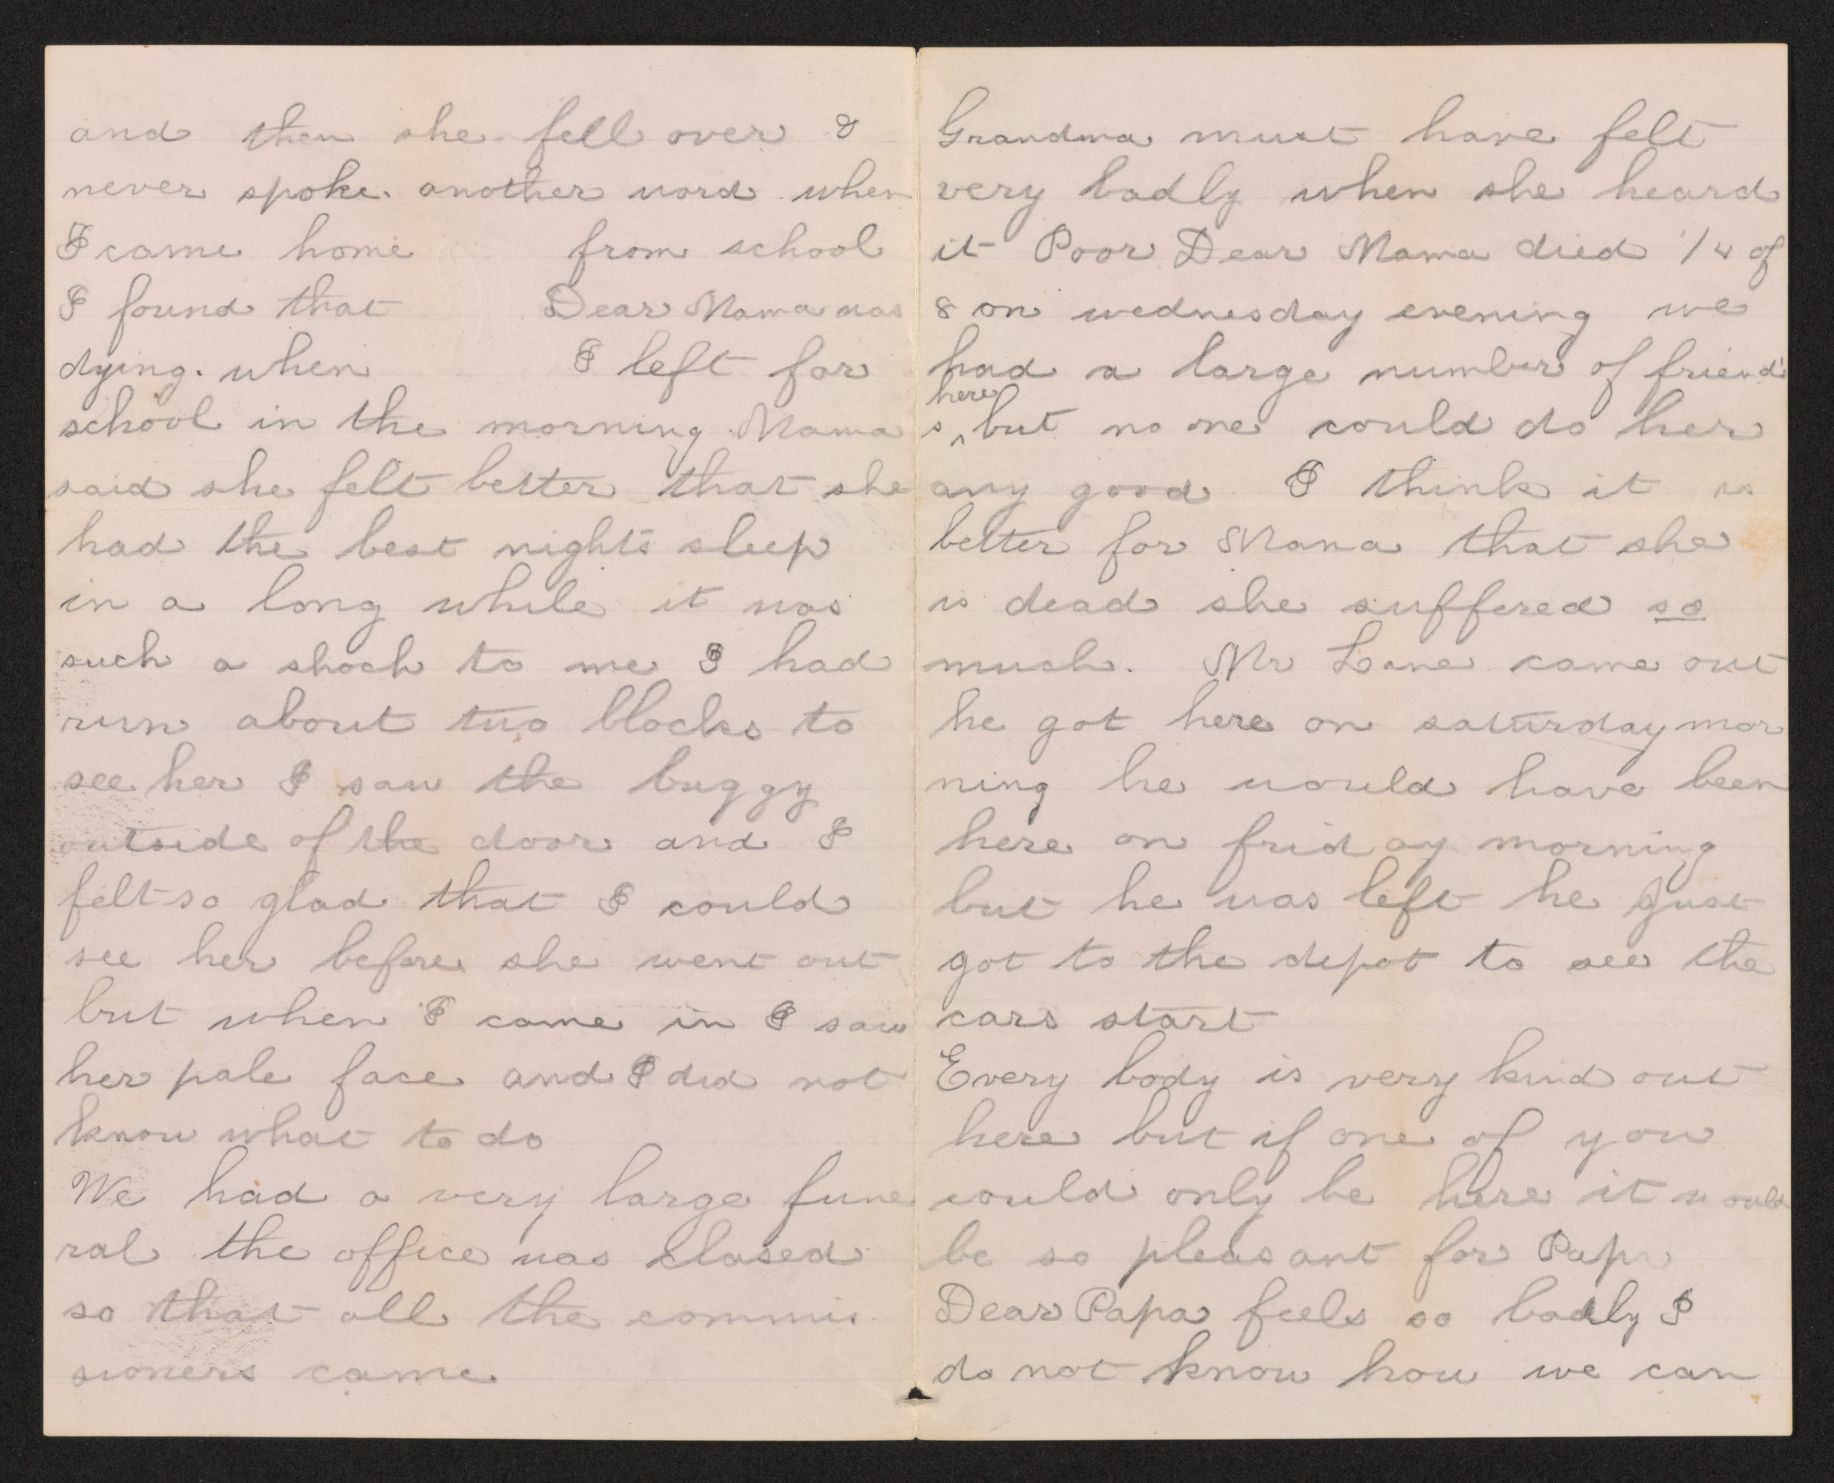 and then she fell over &
never spoke another word when
I came home from school
I found that Dear Mama was
dying. when I left for
school in the morning Mama
said she felt better that she
had the best nights sleep
in a long while it was
such a shock to me I had
run about two blocks to
see her I saw the buggy
outside of the door and I
felt so glad that I could
see her before she went out
but when I came in I saw
her pale face and I did not
know what to do
We had a very large fune
ral the office was closed
so that all the commis
sioners came
Grandma must have felt
very badly when she heard
it Poor Dear Mama died 1/4 of
8 on wednesday evening we
had a large number of friend's
here
s ^ but no one could do her
any good I think it is
better for Mama that she
is dead she suffered so
much. Mr Lane came out
he got here on saturday mor
ning he would have been
here on friday morning
but he was left he just
got to the depot to see the
cars start
Every body is very kind out
here but if one of you
could only be here it would
be so pleasant for Papa
Dear Papa feels so badly I
do not know how we can